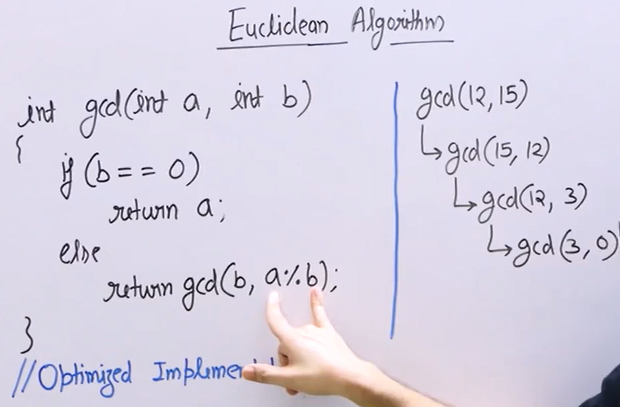 Euclidean Algorithm
int gcd(int a, int b)
{
if (b == 0)
return a;
else
return gcd(b, a%b);
}
//Optimized
gcd(12,15)
↳gcd(15, 12)
↳gcd(12, 3)
↳gcd(3, 0)